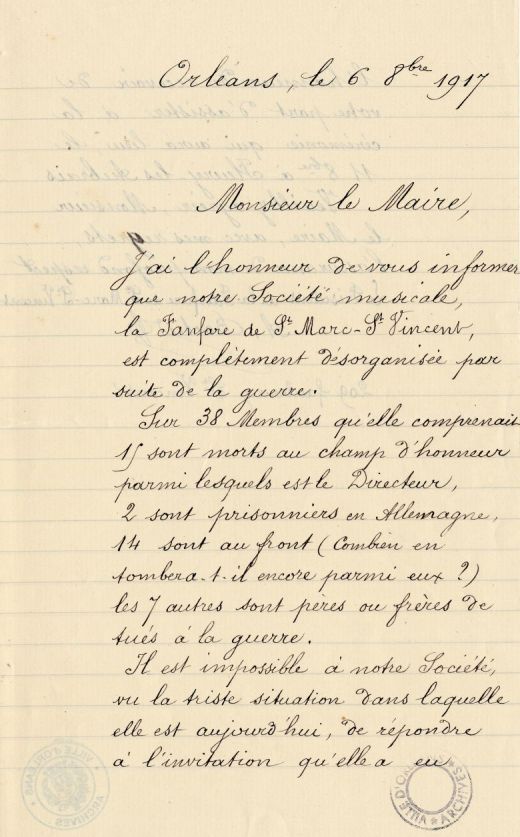 Orléans, le 6 8bre 1917
Monsieur le Maire,
J'ai l'honneur de vous informer
que notre Société musicale,
la Fanfare de St Marc-St Vincent,
est complètement désorganisée par
suite de la guerre.
Sur 38 Membres qu'elle comprenait
15 sont morts au champ d'honneur
parmi lesquels est le Directeur,
2 sont prisonniers en Allemagne,
14 sont au front (Combien en
tombera-t-il encore parmi eux ?)
les 7 autres sont pères ou frères de
tués à la guerre.
Il est impossible à notre Société,
vu la triste situation dans laquelle
elle est aujourd'hui, de répondre
à l'invitation qu'elle a eu
VILLE D'ORLEANS
ARCHIVES